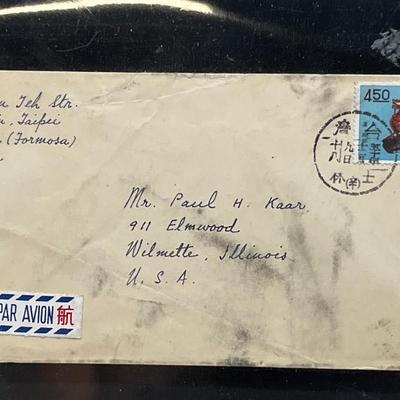 Teh Str.
Taipei
(Formosa)
450
台
灣
士
林
(辛)
Mr. Paul H. Kaar
911 Elmwood
Wilmette, Illinois
U. S. A.
PAR AVION 航